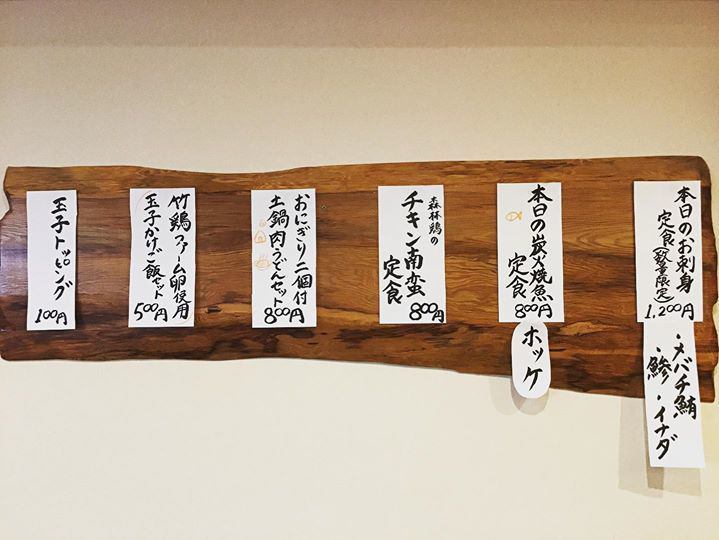 本日のお刺身
定食(数量限定)
1,200円
・メバチ鮪
・鯵・イナダ
本日の炭火焼魚
定食
800円
ホッケ
森林鶏の
チキン南蛮
定食
800円
おにぎり二個付
土鍋肉うどんセット
800円
竹鶏ファーム卵使用
玉子かけご飯セット
500円
玉子トッピング
100円